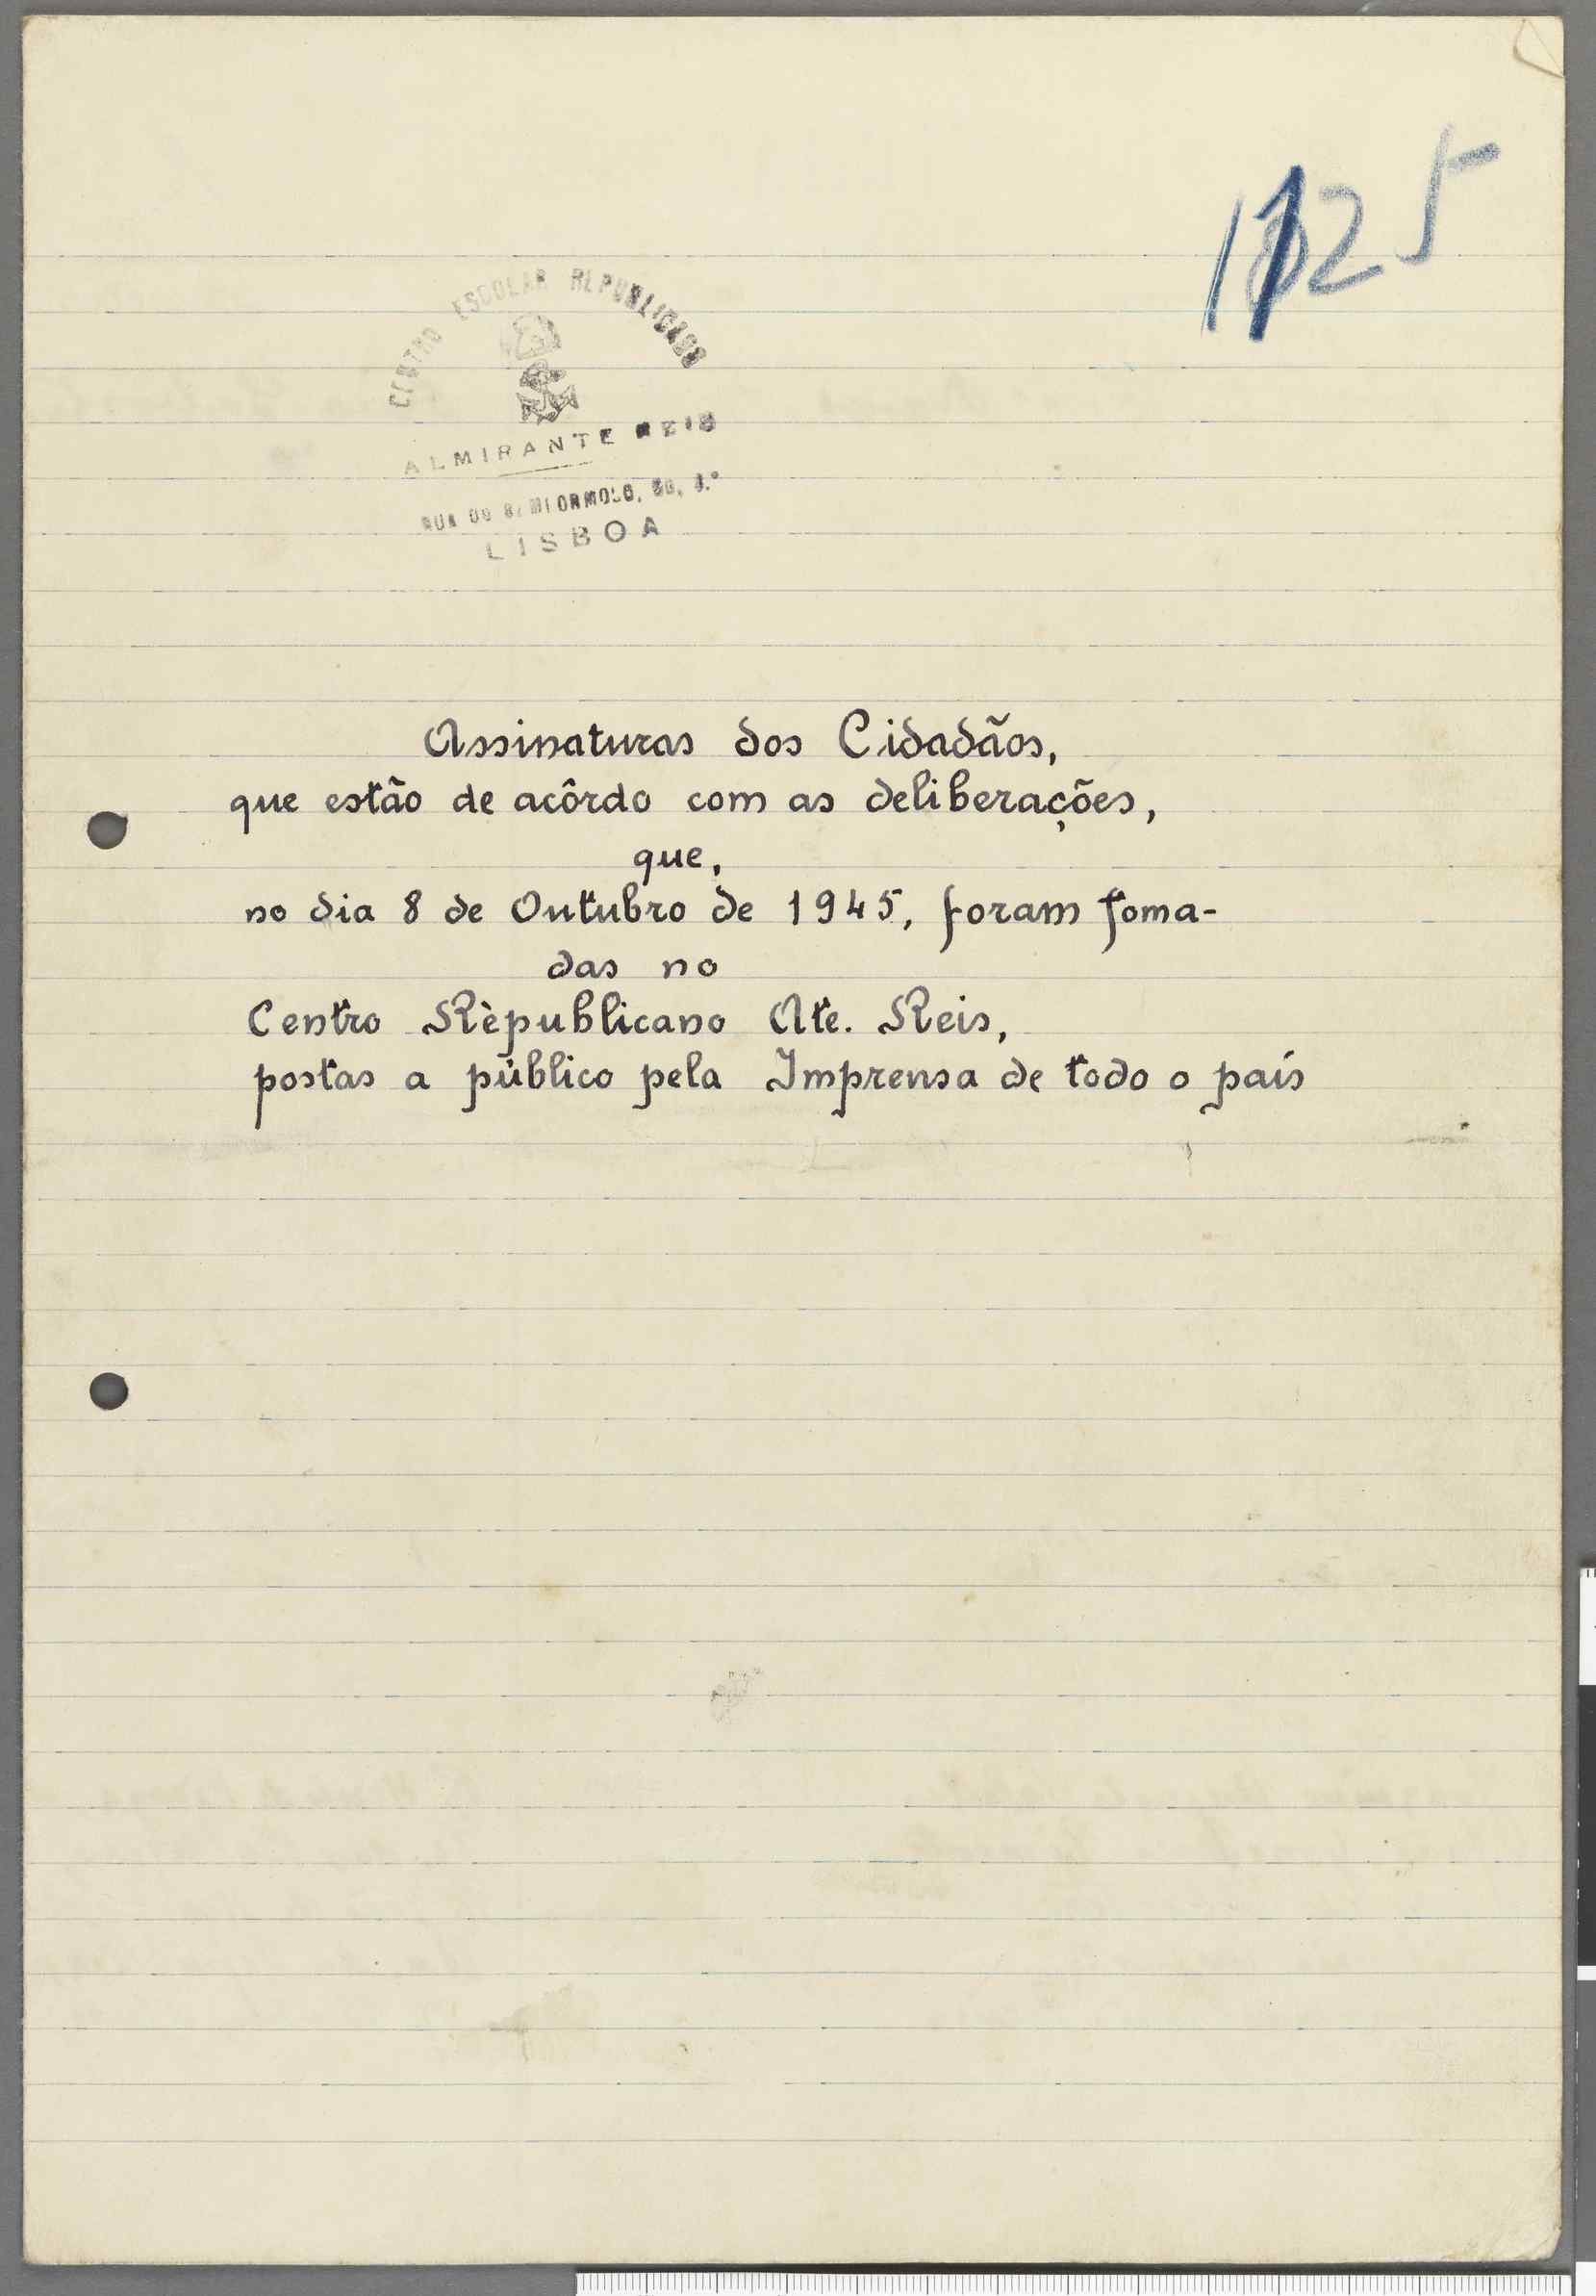 1125
CENTRO ESCOLAR REPUBLICANO
ALMIRANTE REIS
LISBOA
Assinaturas dos Cidadãos,
que estão de acôrdo com as deliberações,
que,
no dia 8 de Outubro de 1945, foram toma-
das no
Centro Rèpublicano Ate. Reis,
postas a público pela Imprensa de todo o país